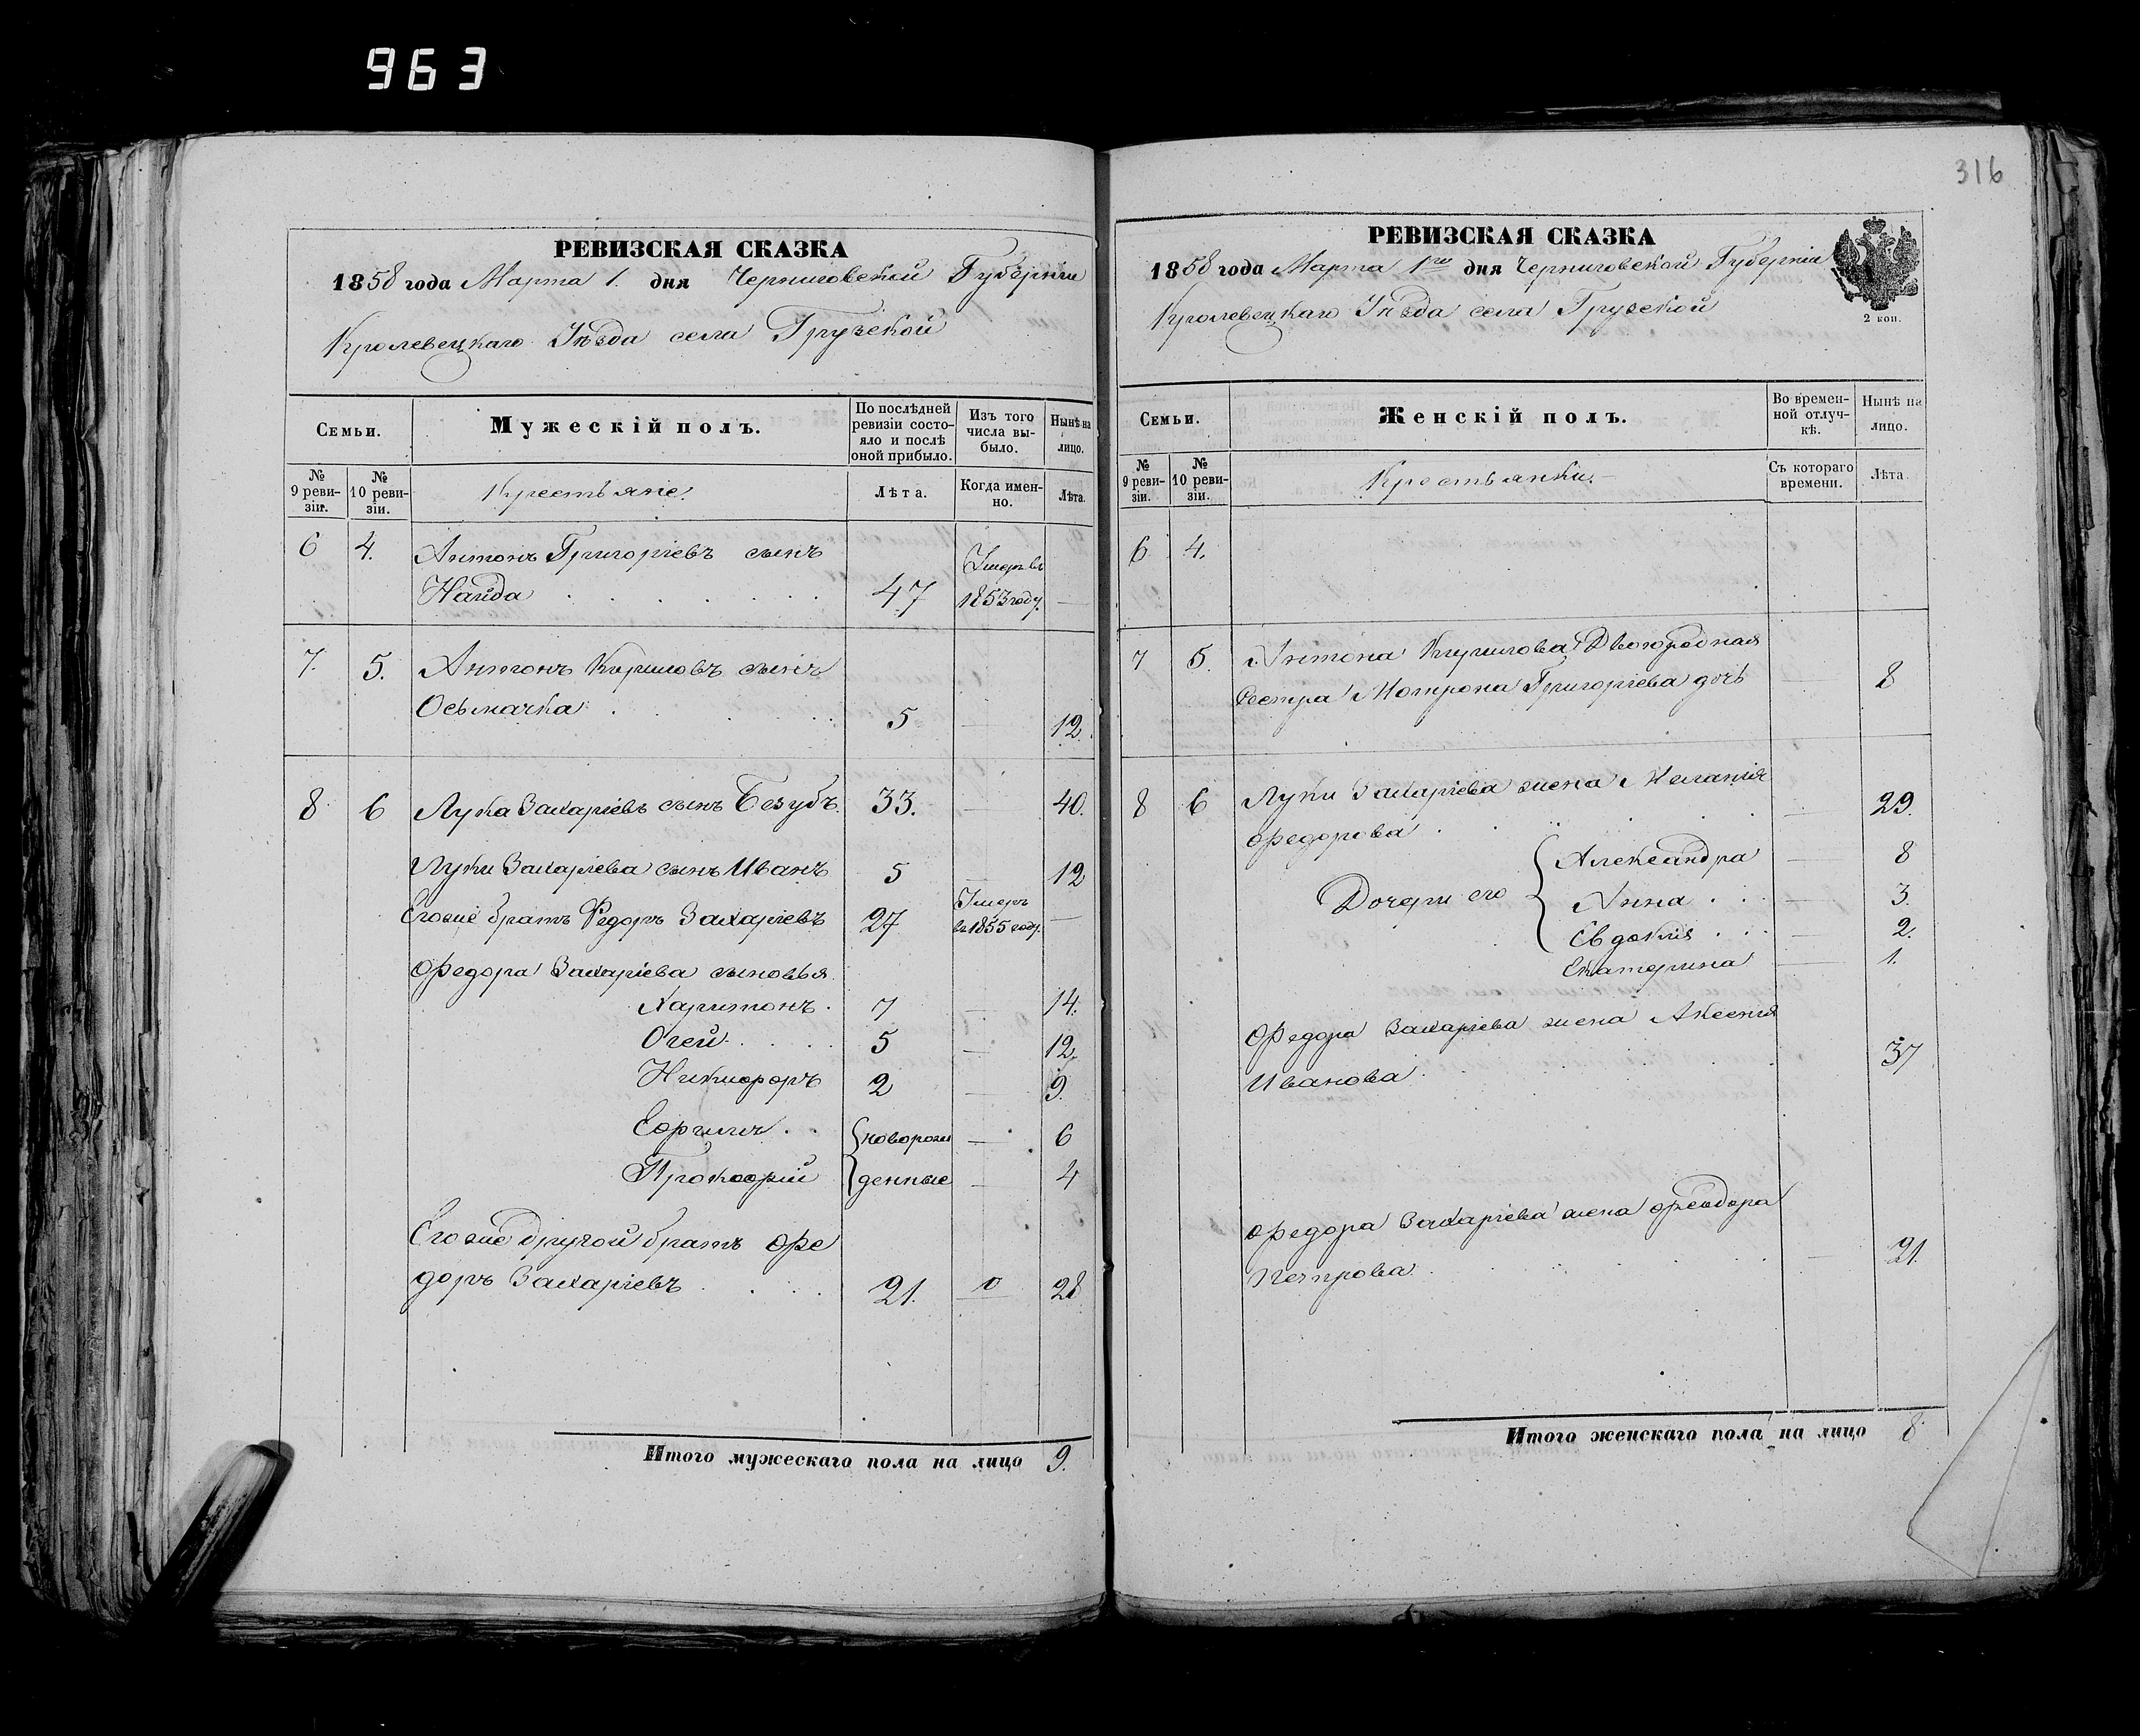 963
РЕВИЗСКАЯ СКАЗКА
1858 года Марта 1. дня Черниговской Губерніи
Кролевецкаго Уѣзда села Грузской
Семьи.
Мужескій полъ.
По послѣдней ревизіи состояло и послѣ оной прибыло.
Изъ того числа выбыло.
Нынѣ на лицо.
№ 9 ревизіи.
№ 10 ревизіи.
Крестьяне.
Лѣта.
Когда именно.
Лѣта.
6 4. Антонъ Григоріевъ сынъ
Найда 47 Умеръ въ 1853 году. —
7. 5. Антонъ Кириловъ сынъ
Осьмачка 5 — 12.
8 6 Лука Захаріевъ сынъ Безубъ 33. — 40.
Луки Захаріева сынъ Иванъ 5 — 12
Егоже братъ Федоръ Захаріевъ 27 Умеръ въ 1855 году. —
Федора Захаріева сыновья
Харитонъ 7 — 14.
5 — 12.
Никифоръ 2 — 9.
{новорож — 6
Прокофій денные — 4
Егоже другой братъ Фе
доръ Захаріевъ 21. 28
Итого мужескаго пола на лицо 9.
316
РЕВИЗСКАЯ СКАЗКА
1858 года Марта 1го дня Черниговской Губерніи
Кролевецкаго Уѣзда села Грузской
2 коп.
Семьи.
Женскій полъ.
Во временной отлучкѣ.
Нынѣ на лицо.
№ 9 ревизіи.
№ 10 ревизіи.
Крестьянки.
Съ котораго времени.
Лѣта.
6. 4.
7 5. Антона Кирилова Двоюродная
Сестра Мотрона Григоріева дочь — 8
8 6 Луки Захаріева жена Меланія
Федорова — 29.
Дочери его { Александра — 8
Анна — 3.
Евдокія — 2.
Екатерина — 1.
Федора Захаріева жена Аксенія
Иванова 37
Федора Захаріева жена Феодора
Петрова — 21.
Итого женскаго пола на лицо 8